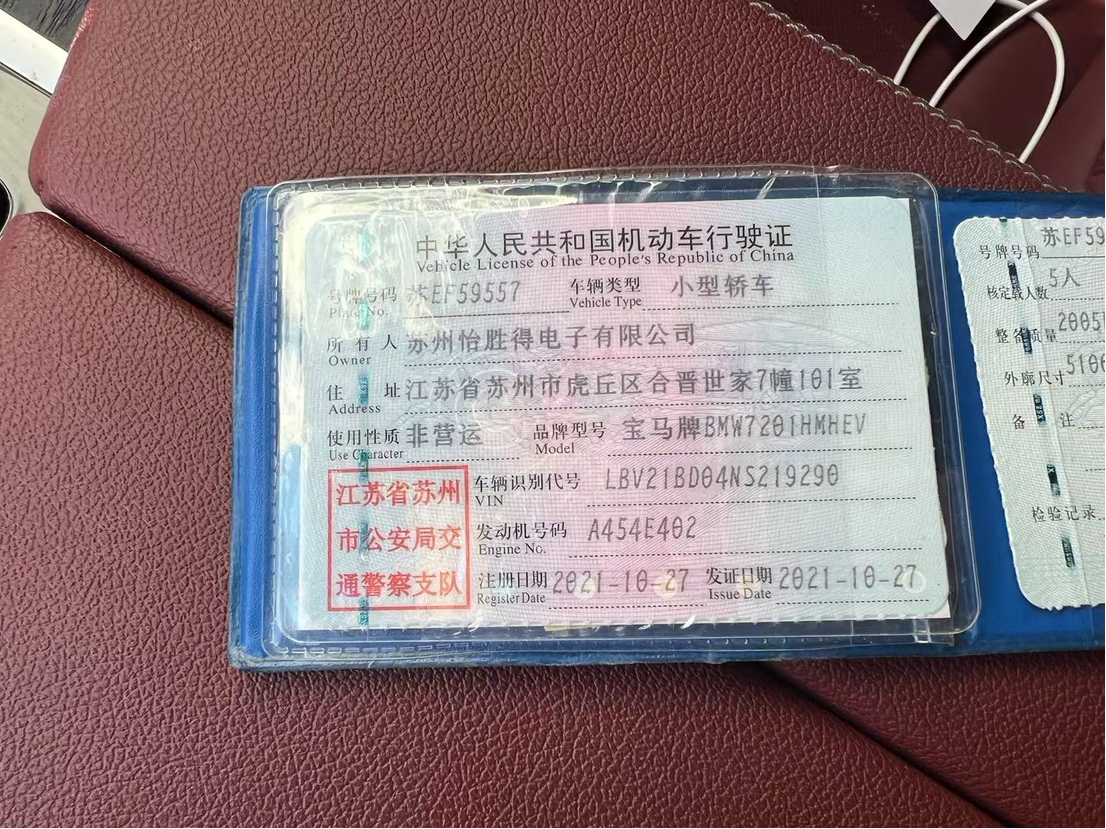 中华人民共和国机动车行驶证
Vehicle License of the People's Republic of China
号牌号码 苏EF59557 车辆类型 小型轿车
Plate No. Vehicle Type
所有人 苏州怡胜得电子有限公司
Owner
住址 江苏省苏州市虎丘区合晋世家7幢101室
Address
使用性质 非营运 品牌型号 宝马牌BMW7201HMHEV
Use Character Model
江苏省苏州
市公安局交
通警察支队
车辆识别代号 LBV21BD04NS219290
VIN
发动机号码 A454E402
Engine No.
注册日期 2021-10-27 发证日期 2021-10-27
Register Date Issue Date
号牌号码 苏EF59
核定载人数 5人
整备质量 2005
外廓尺寸 510
备注
检验记录